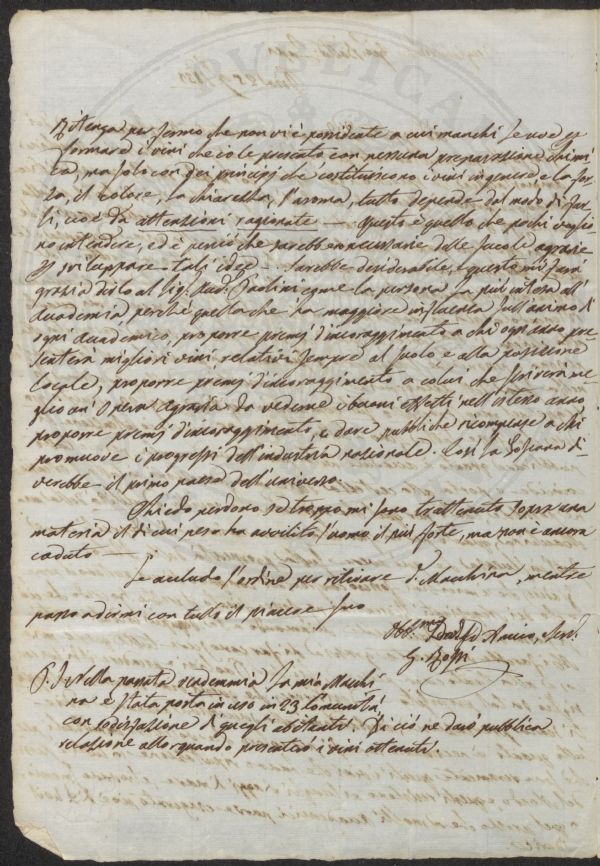 Ritenga per fermo che non vi è possidente a cui manchi se vuole
formare i vini che io le presento con nessuna preparazione chimi
ca, ma solo con dei principj che costituiscono i vini in genere e la for
za, il colore, la chiarezza, l'aroma, tutto depende dal modo di far
li, cioè da attenzioni ragionate — Questo è quello che pochi voglio
no intendere, ed è perciò che sarebbero necessarie delle Scuole agrarie
sviluppare tali idee — Sarebbe desiderabile, e questo mi farà
grazia dirlo al Sig. Paolini come la persona la più intesa all'
Accademia perché quella che ha maggiore influenza sull'animo di
ogni Accademico, proporre premj d'incoraggimento a chi ogni anno pre
senterà migliori vini, relativi sempre al suolo e alla posizione
locale, proporre premj d'incoraggimento a colui che scriverà me
glio un' Opera Agraria da vederne i buoni effetti nell'istesso anno
proporre premj d'incoraggimento, e dare pubbliche ricompense a chi
promuove i progressi dell'industria nazionale. Così la Toscana di-
verebbe il primo paese dell'universo.
Chiedo perdono se troppo mi sono trattenuto sopra una
materia il di cui peso ha avvilito l'uomo il più forte, ma non è ancora
caduto —
Le accludo l'ordine per ritirare d. Macchina, mentre
passo a dirmi con tutto il piacere suo
Obb.mo Amico, Serv.
G. Rossi
P. S. Nella passata vendemmia la mia Macchi
na è stata posta in uso in 23 Comunità
con sodisfazione di quegli abitanti. Di ciò ne darò pubblica
relazione allorquando presenterò i vini ottenuti.